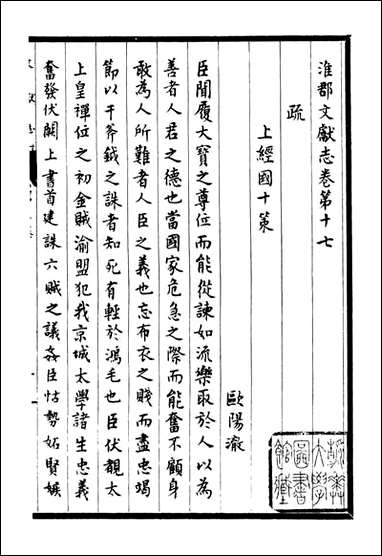 淮郡文獻志卷第十七
疏
上經國十策
歐陽澈
臣聞履大寶之尊位而能從諫如流樂取於人以為
善者人君之德也當國家危急之際而能奮不顧身
敢為人所難者人臣之義也忘布衣之賤而盡忠竭
節以干斧鉞之誅者知死有輕於鴻毛也臣伏覩太
上皇禪位之初金賊渝盟犯我京城太學諸生忠義
奮發伏闕上書首建誅六賊之議姦臣怙勢妬賢嫉
大學
圖書
館藏